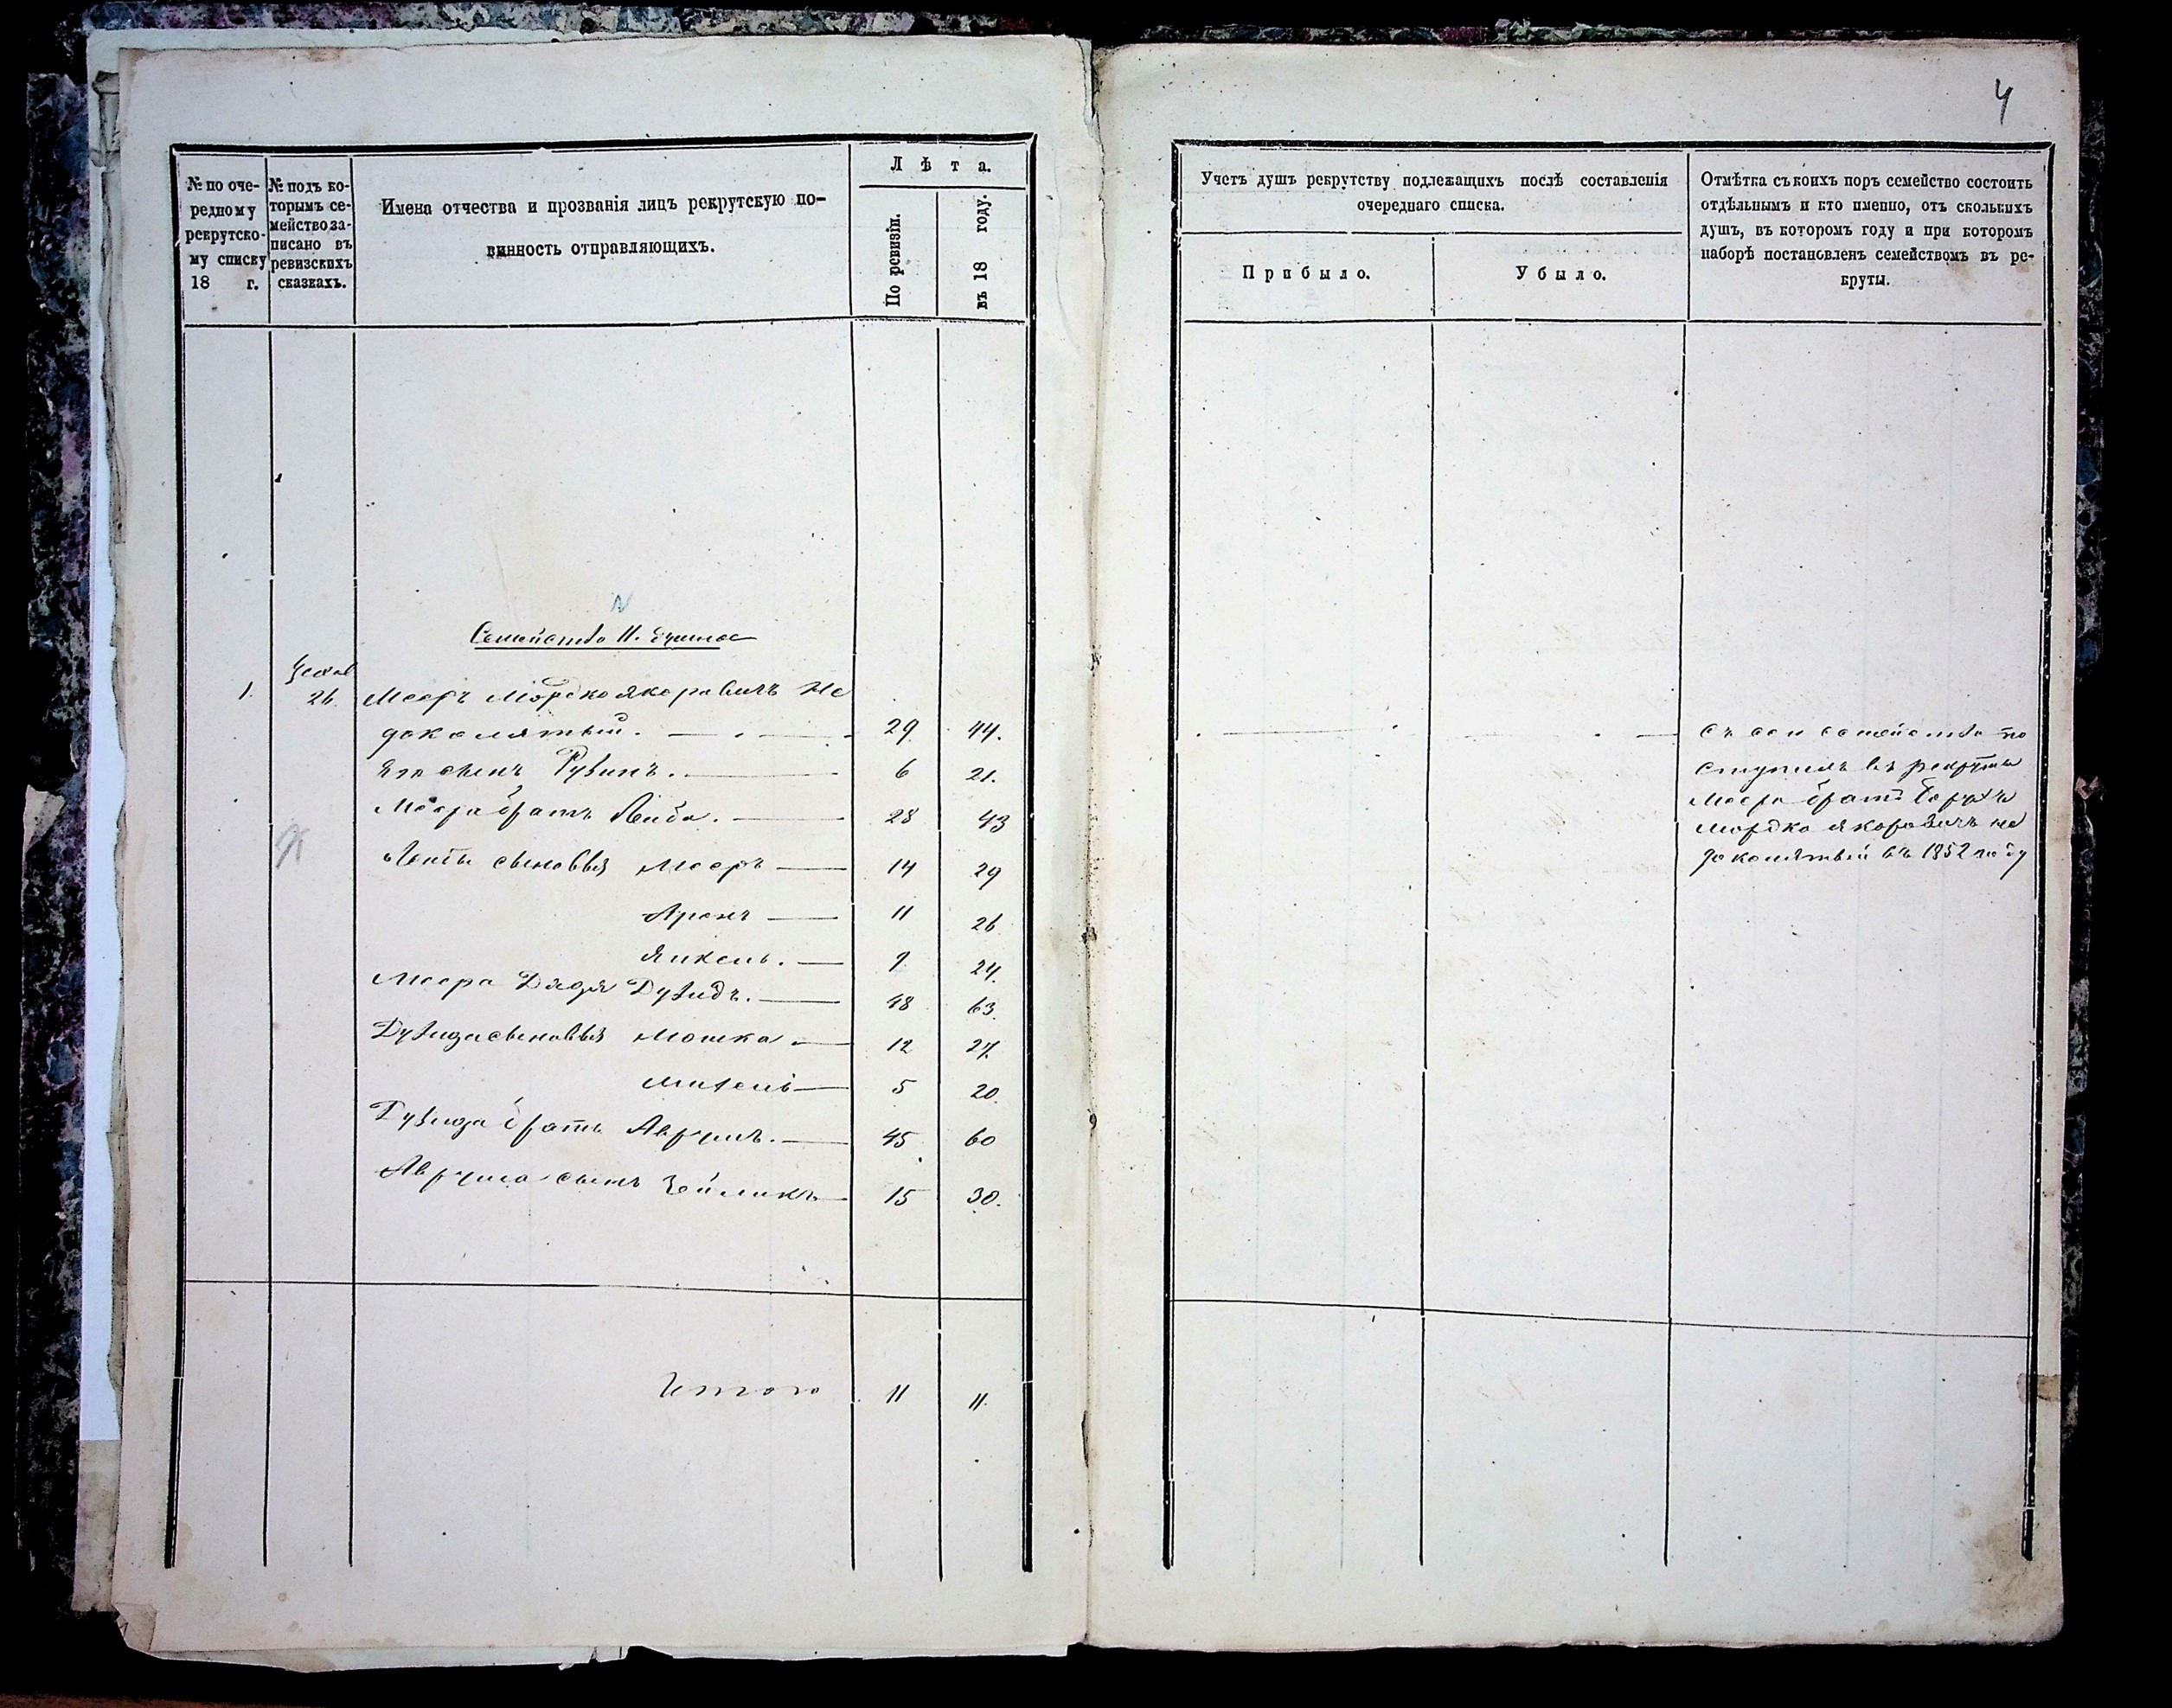 4
№ по оче-
редному
рекрутско-
му списку
18 г.
№ подъ ко-
торымъ се-
мейство за-
писано въ
ревизскихъ
сказкахъ.
Имена отчества и прозванія лицъ рекрутскую по-
винность отправляющихъ.
Лѣта.
По ревизіи.
въ 18 году.
Учетъ душъ рекрутству подлежащихъ послѣ составленія
очереднаго списка.
Прибыло.
Убыло.
Отмѣтка съ коихъ поръ семейство состоитъ
отдѣльнымъ и кто именно, отъ сколькихъ
душъ, въ которомъ году и при которомъ
наборѣ постановленъ семействомъ въ ре-
круты.
Семейство 11. душное
1. 26. Мееръ Мордко Якоровичъ Не
доколятый. 29 44.
Его сынъ Рувинъ. 6 21.
Меера братъ Лейба. 28 43
Лейбы сыновья Мееръ 14 29
Аронъ 11 26
Янкель. 9 24.
Меера Дядя Дувидъ. 48 63.
Дувида сыновья Мошка 12 27.
Михель 5 20.
Дувида братъ Аврумъ. 45 60
Аврума сынъ Зейликъ 15 30.
Итого 11 11.
Съ сего семейства по
ступилъ въ рекруты
Меера братъ Борухъ
Мордко Якоровичъ не
доколятый въ 1852 году